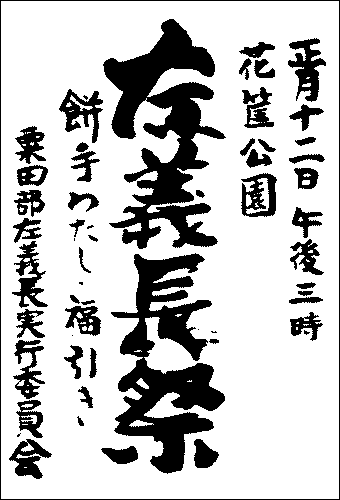 正月十二日 午後三時
花筐公園
左義長祭
餅手わたし・福引き
粟田部左義長実行委員会